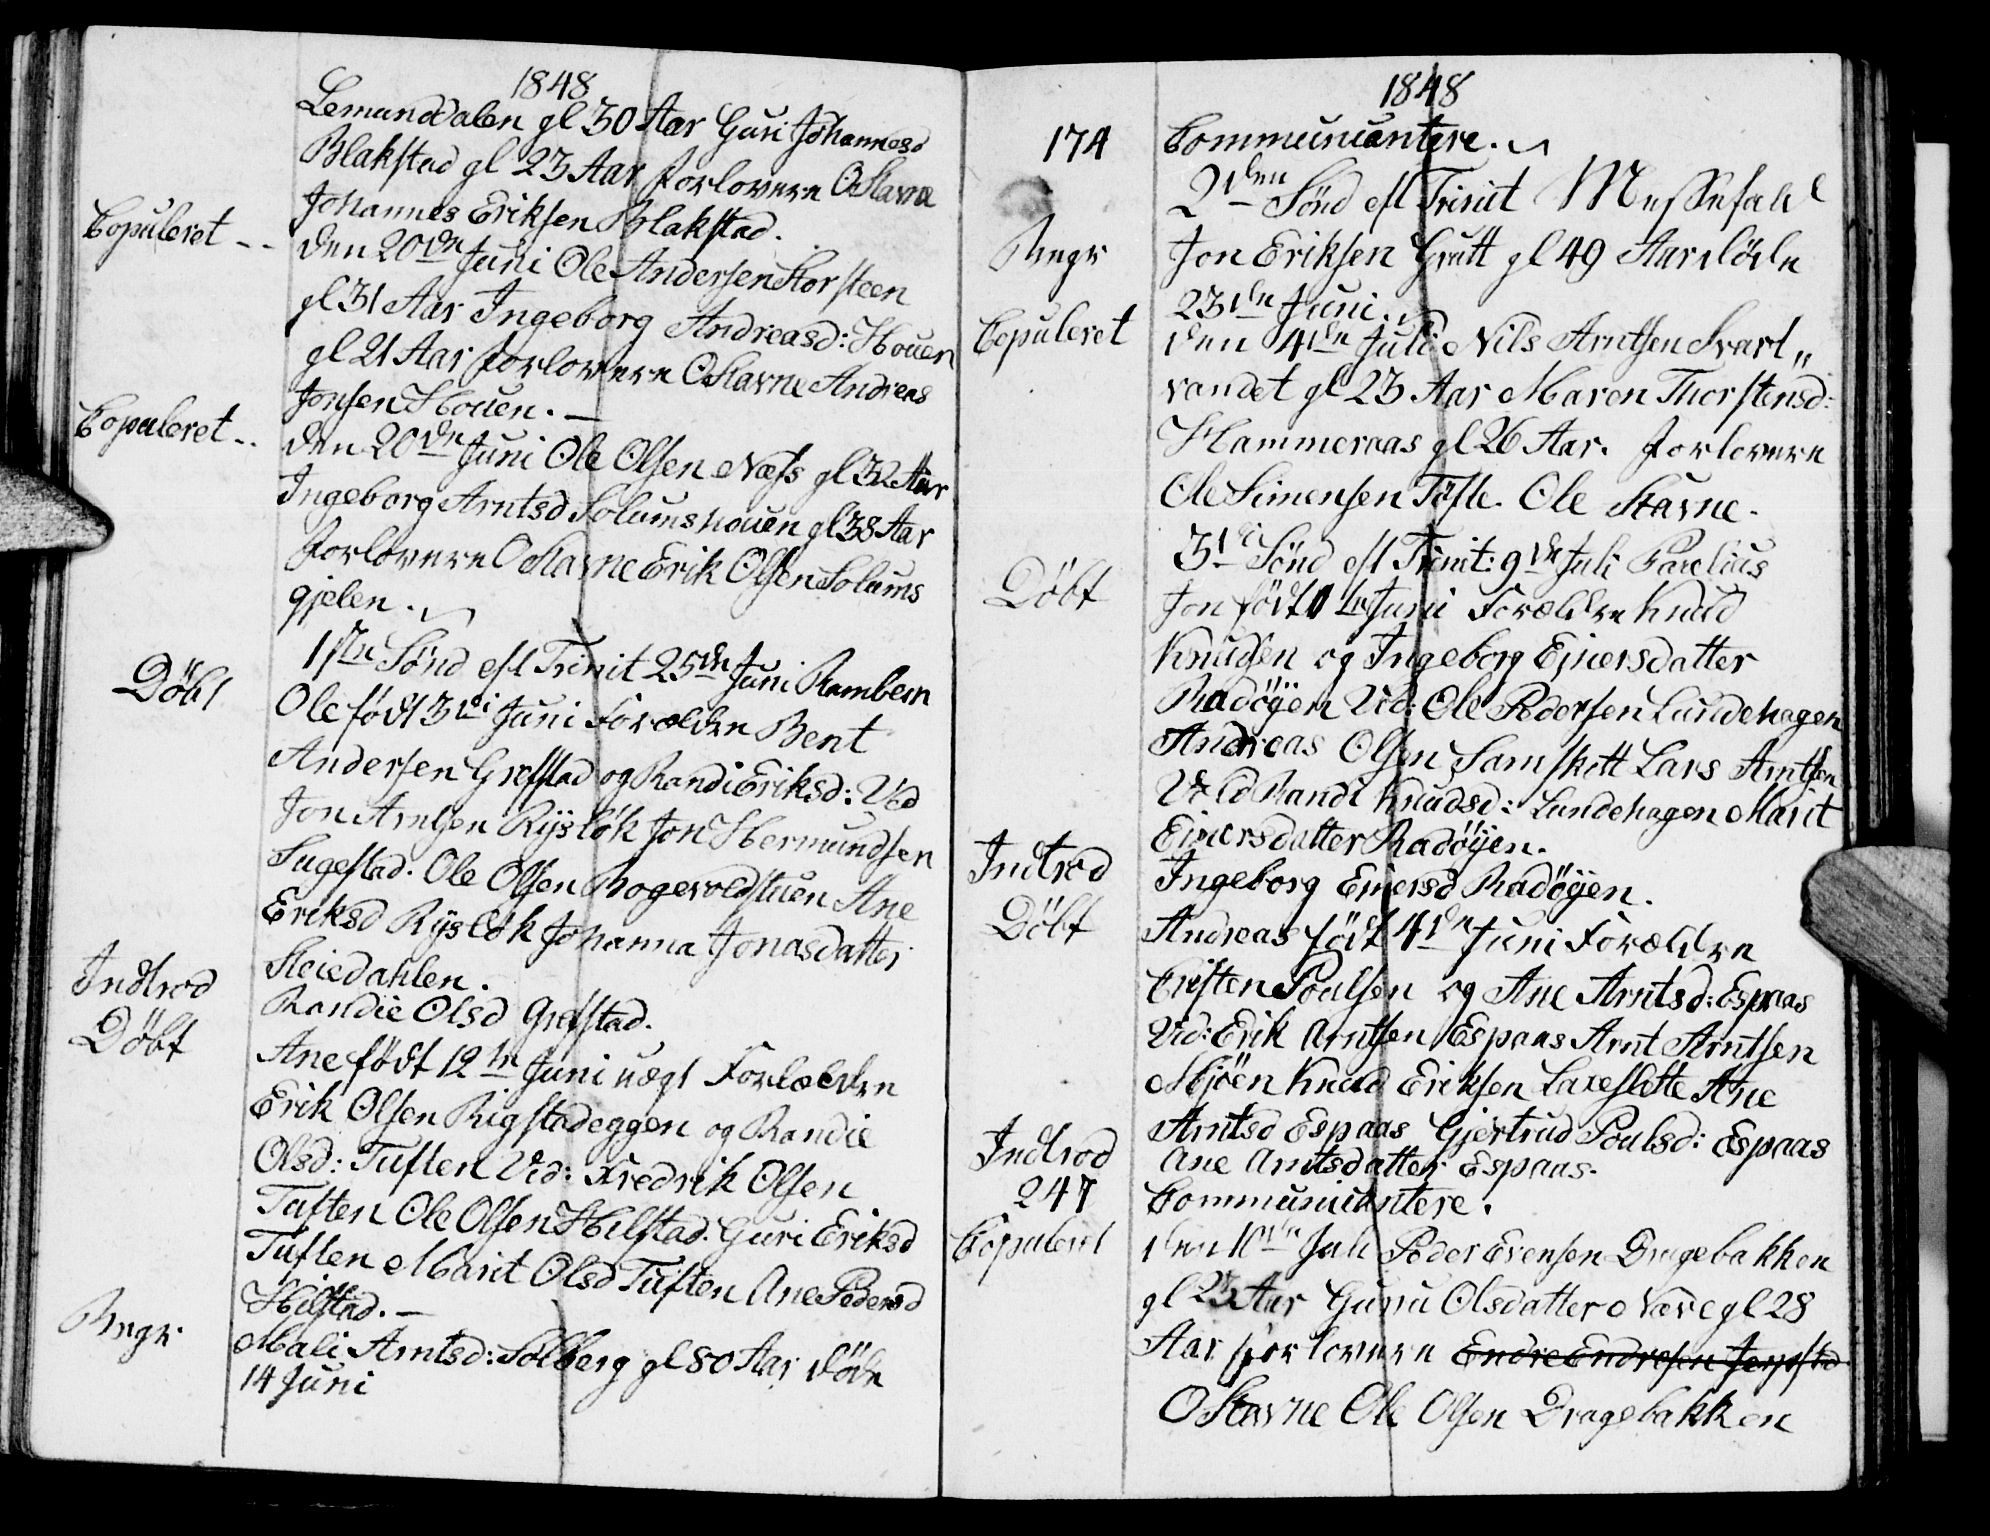 1848
Lemunddalen gl 30 Aar Guri Johannesd
Blakstad gl 23 Aar Forlovere O Stavne
Johannes Eriksen Blakstad.
Copuleret -- den 20de Juni Ole Andersen Storsteen
gl 31 Aar Ingeborg Andreasd: Houen
gl 21 Aar Forlovere O Stavne Andreas
Jonsen Houen. —
Copuleret -- den 20de Juni Ole Olsen Næss gl 32 Aar
Ingeborg Arntsd Solumshouen gl 38 Aar
Forlovere O Stavne Erik Olsen Solums
gjelen.
1ste Sönd eft Trinit 25de Juni Rambern
Döbt Ole född 3di Juni Forældre Bent
Andersen Grefstad og Randi Eriksd: Vid
Jon Arntsen Rÿslök Jon Hermundsen
Sugestad. Ole Olsen Rogevoldstuen Ane
Eriksd Rÿslök Johanna Jonasdatter
Sleiedahlen.
Indtrod Randie Olsd Grefstad.
Döbt Ane födt 12te Juni uægt Forældre
Erik Olsen Rigstadeggen og Randie
Olsd: Tuften Vid: Fredrik Olsen
Tuften Ole Olsen Hilstad. Guri Eriksd
Tuften Marit Olsd Tuften Ane Pedersd
Hilstad. —
Begr. Mali Arntsd: Solberg gl 80 Aar döde
14 Juni
1848
174 Communicantere.
2den Sönd eft Trinit Messefald
Begr Jon Eriksen Grutt gl 49 Aar döde
23de Juni.
Copuleret den 4de Juli Nils Arntsen Svart„
vandet gl 23 Aar Maren Thorstensd:
Hammeraas gl 26 Aar. Forlovere
Ole Simensen Töfte. Ole Stavne.
3di Sönd eft Trinit: 9de Juli
Döbt Jon födt 1te Juni Forældre Knud
Knudsen og Ingeborg Ejnersdatter
Radöÿen Vid: Ole Pedersen Lundehagen
Andreas Olsen Lars Arntsen
Randi Knudsd: Lundehagen Marit
Ejnersdatter Radöÿen.
Indtrod Ingeborg Einersd Radöÿen.
Döbt Andreas födt 4de Juni Forældre
Cristen Poulsen og Ane Arntsd: Espaas
Vid: Erik Arntsen Espaas Arnt Arntsen
Mjöen Knud Eriksen Laxeslette Ane
Arntsd Espaas Gjertrud Poulsd: Espaas
Indtrod Ane Arntsdatter Espaas.
247 Communicantere.
Copuleret den 10de Juli Peder Evensen Dragebakken
gl 23 Aar Gunu Olsdatter Nære gl 28
Aar Forlovere Endre Endresen
O Stavne Ole Olsen Dragebakken